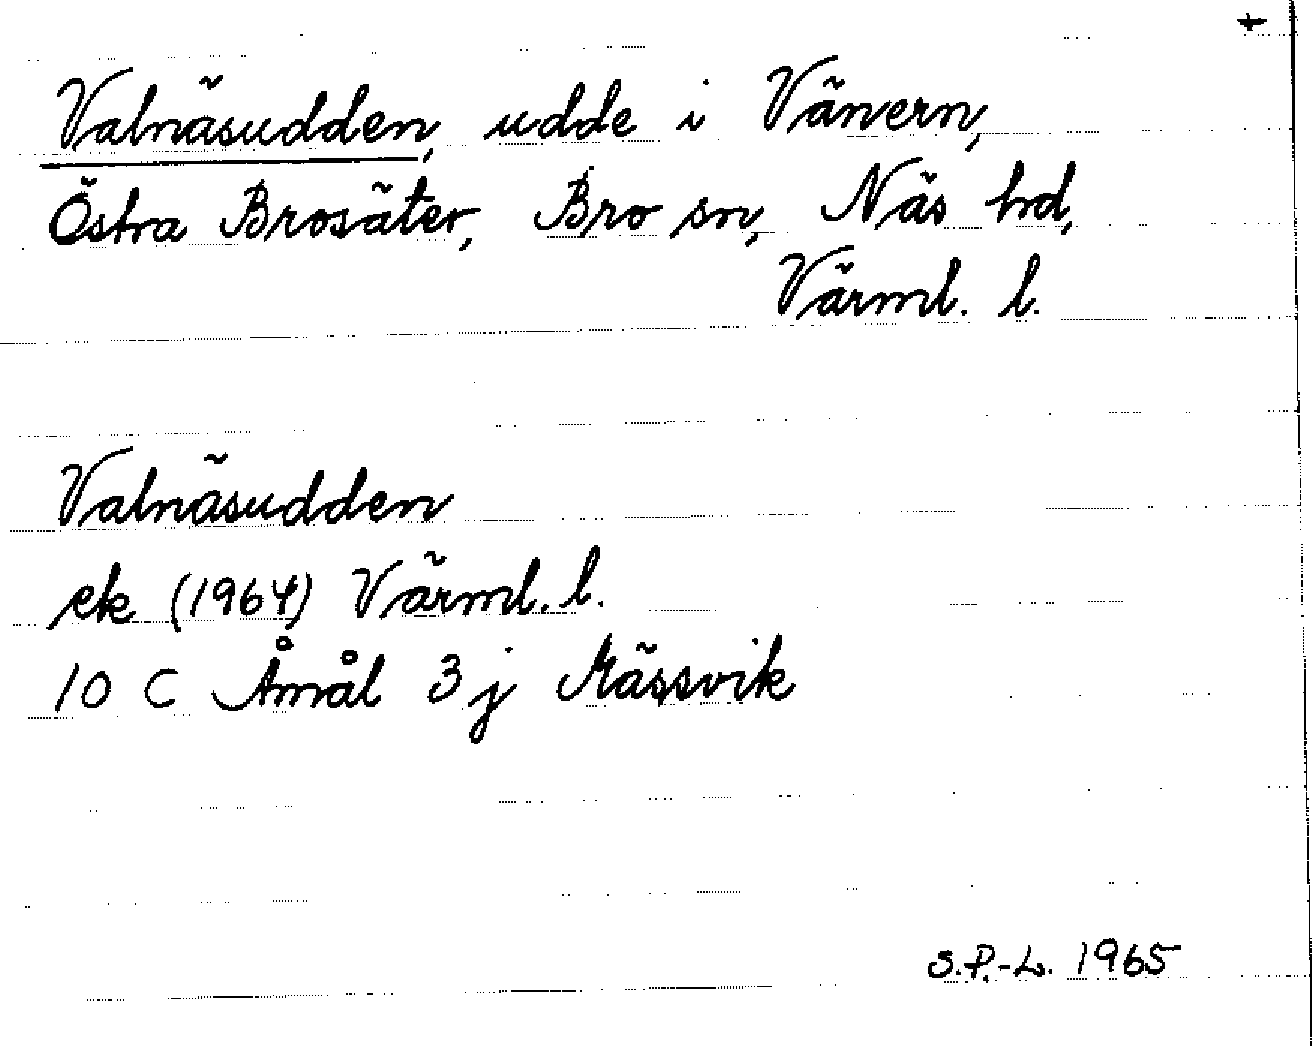 +
Valnäsudden, udde i Vänern,
Östra Brosäter, Bro sn, Näs hd,
Värml. l.
Valnäsudden
ek (1964) Värml. l.
10 C Åmål 3 j Mässvik
S.P.-L. 1965